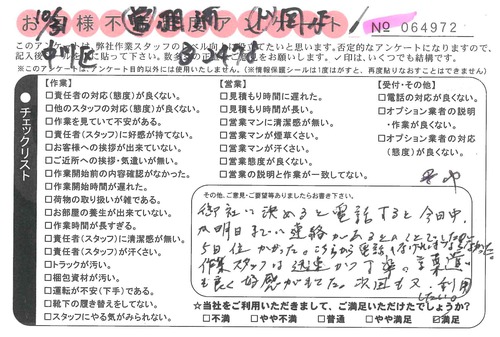 お客様不満足度アンケート
No 064972
このアンケートは、弊社作業スタッフのレベル向上に役立てたいと思います。否定的なアンケートになりますので、
※このアンケートはアンケート目的以外には使用いたしません。(※情報保護シールは1度はがすと、再度貼りなおすことはできません)
●チェックリスト
【作業】
□責任者の対応(態度)が良くない。
□他のスタッフの対応(態度)が良くない。
□作業を見ていて不安がある。
□責任者(スタッフ)に好感が持てない。
□お客様への挨拶が出来ていない。
□ご近所への挨拶・気遣いが無い。
□作業開始前の内容確認がなかった。
□作業開始時間が遅れた。
□荷物の取り扱いが雑である。
□お部屋の養生が出来ていない。
□作業時間が長すぎる。
□責任者(スタッフ)に清潔感が無い。
□責任者(スタッフ)が汗くさい。
□トラックが汚い。
□梱包資材が汚い。
□運転が不安(下手)である。
□靴下の履き替えをしてない。
□スタッフにやる気がみられない。
【営業】
□見積もり時間に遅れた。
□見積もり時間が長い。
□営業マンに清潔感が無い。
□営業マンが煙草くさい。
□営業マンが汗くさい。
□営業態度が良くない。
□営業の説明と作業が一致してない。
【受付・その他】
□電話の対応が良くない。
□オプション業者の説明
・作業が良くない。
□オプション業者の対応
(態度)が良くない。
その他、ご意見・ご要望等ありましたらお書き下さい。
御社に決めると電話すると今日中
又明日までに連絡があるとのことでしたが
5日位かかった。こちらから電話しなければ
作業スタッフは迅速かつ丁寧。言葉遣い
も良く好感がもてた。次回も又、利用
したい。
★当社をご利用いただきまして、ご満足いただけたでしょうか?
□不満 □やや不満 □普通 □やや満足 ☑満足